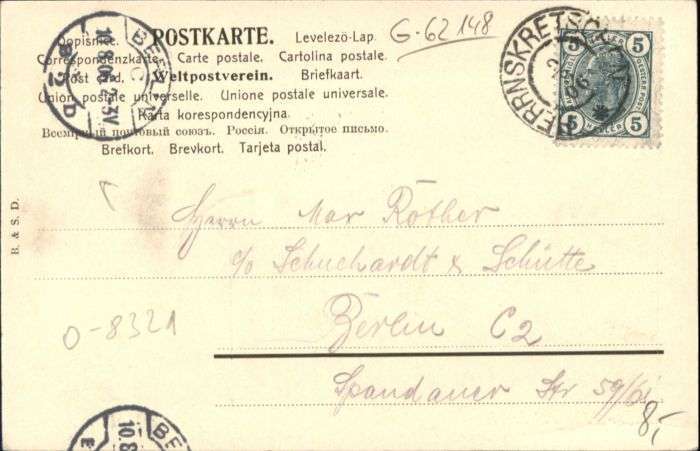 G-62148
Dopisnice. POSTKARTE. Levelezö-Lap.
Correspondenzkarte. Carte postale. Cartolina postale.
Post card. Weltpostverein. Briefkaart.
Union postale universelle. Unione postale universale.
Karta korespondencyjna.
Всемирный почтовый союзъ. Россія. Открытое письмо.
Brefkort. Brevkort. Tarjeta postal.
BERLIN C
10.8.06.2-3V
2 b
HERRNSKRETSCHEN
06
5 5
5 HELLER 5
B. & S. D.
Herrn Max Röther
c/o Schuchardt & Schütte
Berlin C2
Spandauer Str 59/61
0-8321
8,-
10.8
BE